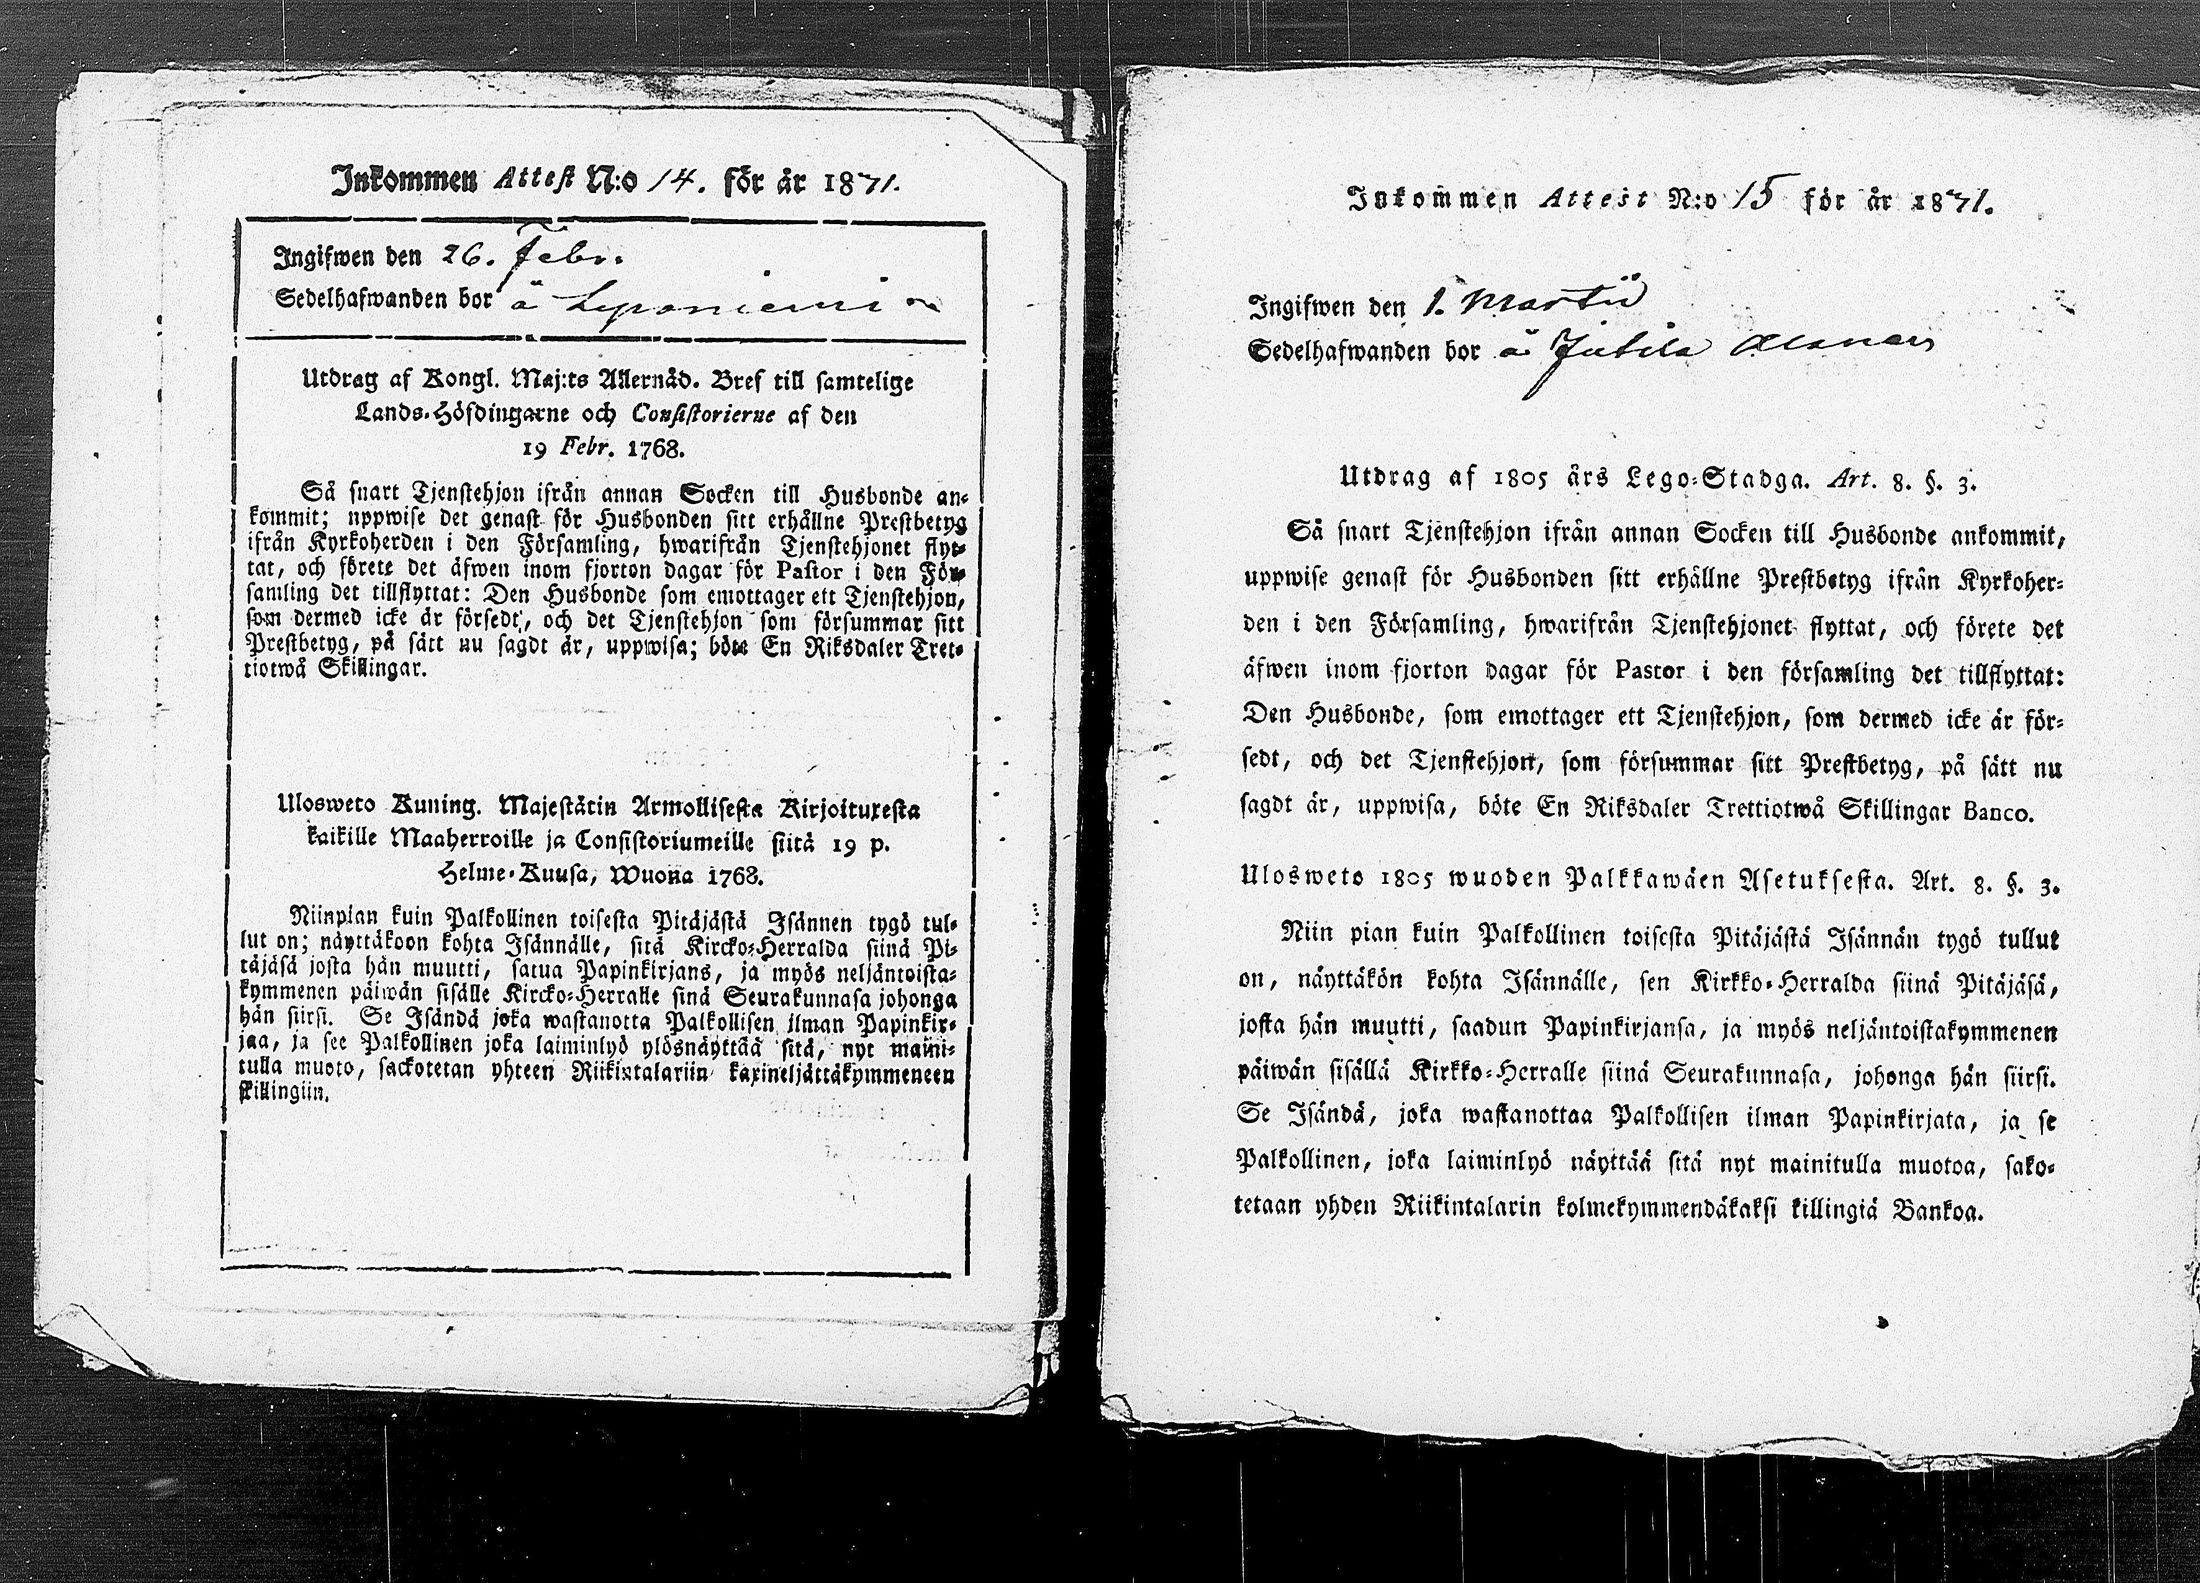 Inkommen Attest N:o 14. för år 1871.
Ingifwen den 26. Febr.
Sedelhafwanden bor å
Utdrag af Kongl. Maj:ts Allernåd. Bref till samtelige
Lands-Höfdingarne och Consistorierne af den
19 Febr. 1768.
Så snart Tjenstehjon ifrån annan Socken till Husbonde an-
kommit; uppwise det genast för Husbonden sitt erhållne Prestbetyg
ifrån Kyrkoherden i den Församling, hwarifrån Tjenstehjonet flyt-
tat, och förete det äfwen inom fjorton dagar för Pastor i den För-
samling det tillflyttat: Den Husbonde som emottager ett Tjenstehjon,
som dermed icke är försedt, och det Tjenstehjon som försummar sitt
Prestbetyg, på sätt nu sagdt är, uppwisa; böte En Riksdaler Tret-
tiotwå Skillingar.
Ulosweto Kuning. Majestätin Armollisesta Kirjoituxesta
kaikille Maaherroille ja Consistoriumeille siitä 19 p.
Helme-Kuusa, Wuona 1768.
Niinpian kuin Palkollinen toisesta Pitäjästä Isännen tygö tul-
lut on; näyttäkoon kohta Isännälle, sitä Kircko-Herralda siinä Pi-
täjäsä josta hän muutti, satua Papinkirjans, ja myös neljäntoista-
kymmenen päiwän sisälle Kircko-Herralle sinä Seurakunnasa johonga
hän siirsi. Se Isändä joka wastanotta Palkollisen ilman Papinkir-
jaa, ja see Palkollinen joka laiminlyö ylösnäyttää sitä, nyt maini-
tulla muoto, sackotetan yhteen Riikintalariin kaxineljättäkymmeneen
skillingiin.
Inkommen Attest N:o 15 för år 1871.
Ingifwen den 1. Martii
Sedelhafwanden bor å Jutila
Utdrag af 1805 års Lego-Stadga. Art. 8. §. 3.
Så snart Tjenstehjon ifrån annan Socken till Husbonde ankommit,
uppwise genast för Husbonden sitt erhållne Prestbetyg ifrån Kyrkoher-
den i den Församling, hwarifrån Tjenstehjonet flyttat, och förete det
äfwen inom fjorton dagar för Pastor i den församling det tillflyttat:
Den Husbonde, som emottager ett Tjenstehjon, som dermed icke är för-
sedt, och det Tjenstehjon, som försummar sitt Prestbetyg, på sätt nu
sagdt är, uppwisa, böte En Riksdaler Trettiotwå Skillingar Banco.
Ulosweto 1805 wuoden Palkkawäen Asetuksesta. Art. 8. §. 3.
Niin pian kuin Palkollinen toisesta Pitäjästä Isännän tygö tullut
on, näyttäkön kohta Isännälle, sen Kirkko-Herralda siinä Pitäjäsä,
josta hän muutti, saadun Papinkirjansa, ja myös neljäntoistakymmenen
päiwän sisällä Kirkko-Herralle siinä Seurakunnasa, johonga hän siirsi.
Se Isändä, joka wastanottaa Palkollisen ilman Papinkirjata, ja se
Palkollinen, joka laiminlyö näyttää sitä nyt mainitulla muotoa, sako-
tetaan yhden Riikintalarin kolmekymmendäkaksi killingiä Bankoa.